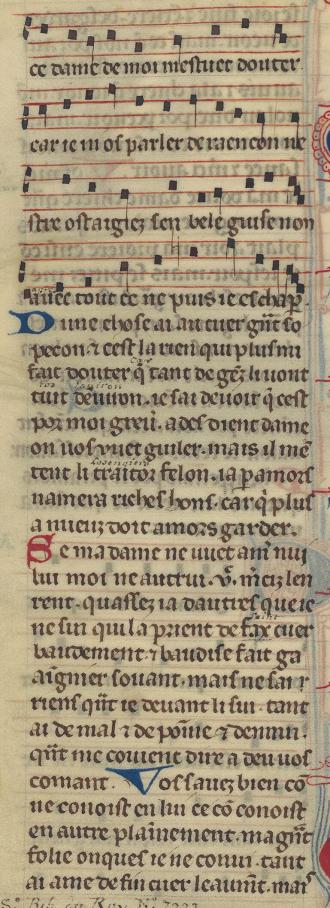 ce dame de moi mestuet douter
car ie ni os parler de raencon ne
stre ostargiez sen bele guise non
auec tout ce ne puis ie eschap̱.
D une chose ai au cuer gñt so
pecon ⁊ cest la rien qui plus mi
fait douter q̃ tant de gēz li uont
tuit deuiron. ie sai deuoir q̃ cest
por moi greũ. ades dient dame
on uos uuet guiler. mais il mē
tent li traitor felon. ia p amors
namera riches hons. car q̃ plus
a mieuz doit amors garder.
S e ma dame ne uuet am̃ nul
lui moi ne autrui. v̾. merz len
rent. quassez ia dautres que ie
ne sui qui la prient de fax cuer
baudement ⁊ baudise fait ga
aignier souant. mais ne sai r
riens qñt ie deuant li sui. tant
ai de mal ⁊ de poīne ⁊ dennui.
qñt me couient dire a deu uos
comant. Vos sauez bien cō
ne conoist en lui ce cō conoist
en autre plainement. ma gñt
folie onques ie ne conui. tant
ai ame de fin cuer leaumt̃. mais